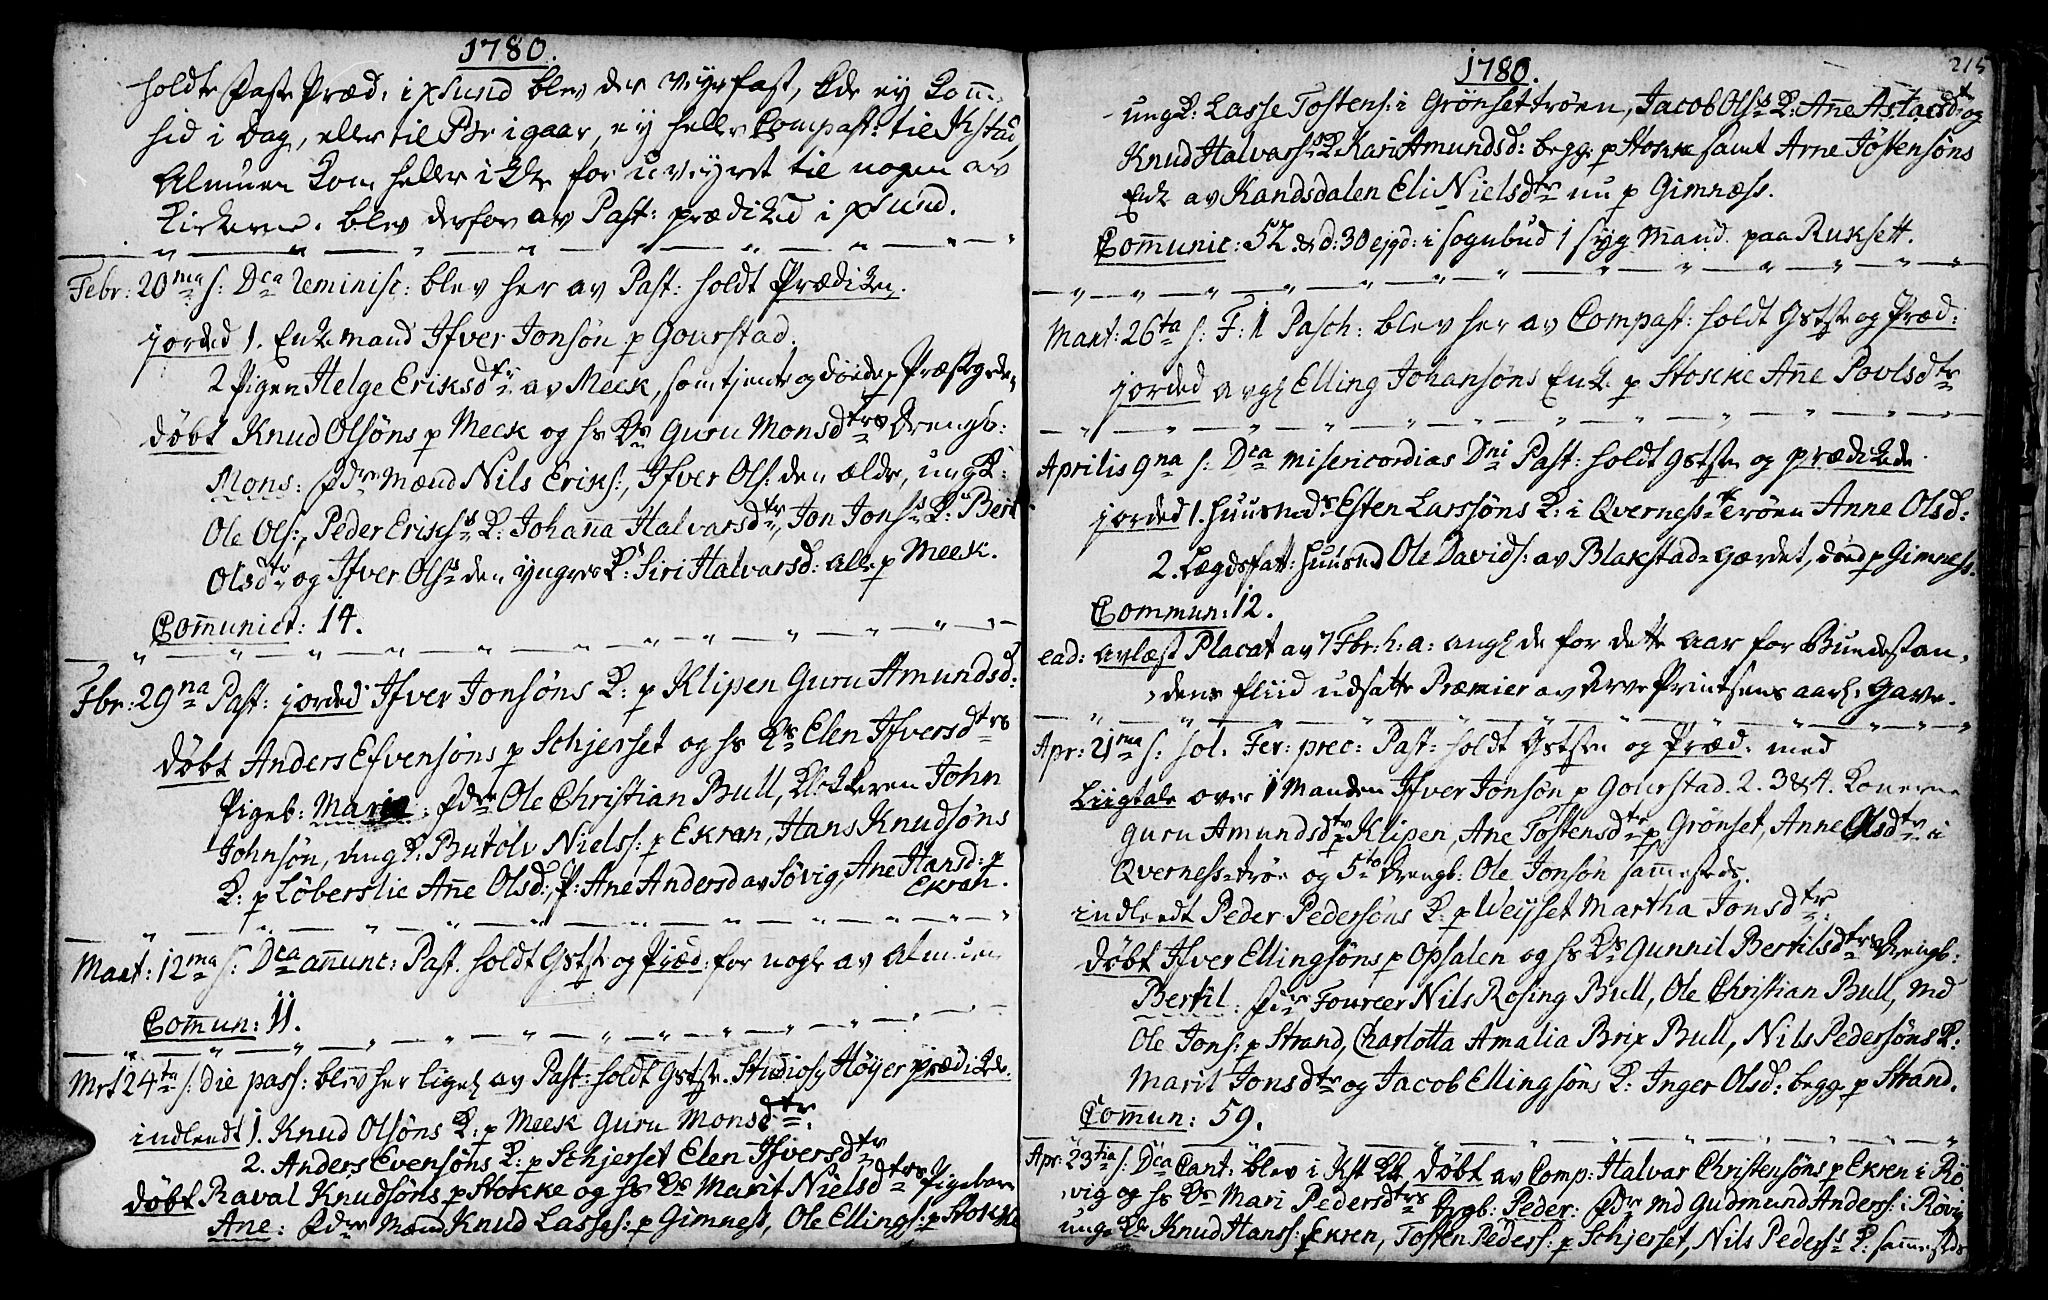 1780.
holdte Past: Præd: i xsund blev der veyrfast, kde ey kom¯
hid i Dag, eller til Bør igaar, ey heller Compast: til Kstad,
Almuen kom heller ikke for uveyret til nogen av
Kirkerne. blev derfor av Past: prædiked i xsund.
Febr: 20ma s: Dca Reminisc: blev her av Past: holdt Prædiken.
jorded 1. Enkemand Ifver Jonsøn p Gourstad.
2 Pigen Helge Eriksdtr av Meek, som tjente og døede p Præstegrden
døbt Knud Olsøns p Meek og hs Ks Guru Monsdtrs Drengb:
Mons: Fdre Mænd Nils Eriks:, Ifver Ols: den ældr, ungk:
Ole Ols:, Peder Eriks:s K: Johaña Halvarsdtr, Jon Jons:s K: Berit
Olsdtr og Ifver Ols:s den yngres K: Siri Halvarsd: alle p Meek.
Com̄unict: 14.
Fbr: 29na Past: jorded Ifver Jonsøns K: p Klipen Guru Amundsd:
døbt Anders Efvensøns p Schjerset og hs Ks Elen Ifversdtrs
Pigeb: Maria: Fdre Ole Christian Bull, Klokkeren John
Johnsøn, ungk: Butolv Nielss: p Ekran, Hans Knudsøns
K: p Løberslie Añe Olsd:, P: Ane Andersd av Søvig, Ane Hansd: p
Ekran.
Mart: 12ma s: Dca añunc: Past. holdt Gstste og Præd: for nogle av Almuen
Com̄un: 11.
Mrt 24ta s: Die pass: blev her ligel av Past: holdt Gstste. Studiosg Høyer prædikede.
indleedt 1. Knud Olsøns K: p Meek Guru Monsdtr.
2. Anders Evensøns K: p Schjerset Elen Ifversdtr
døbt Raval Knudsøns p Stokke og hs Ks Marit Nielsdtrs Pigebarn
Ane: Fdre Mænd Knud Lasses: p Gimness, Ole Ellings: p Stokke
1780.
215
ungk: Lasse Tostens: i Grønsettrøen, Jacob Ols:s K: Añe Aslacsdtr og
Knud Halvars:s K Kari Amundsd: begge p Stokke samt Arne Jøstensøns
Enk av Kandsdalen Eli Nielsdtr nu p Gimness.
Com̄unic: 52 &d: 30 ejgd: i sognebud 1 syg Mand paa Ruksett.
Mart: 26ta s: F: 1 Pasch: blev her av Compast: holdt Gstste og Præd:
jorded avgl Elling Johansøns Enk p Stokke Añe Povlsdtr
Aprilis 9na s: Dca misericordias Dni Past: holdt Gstste og prædikede.
jorded 1. huusmds Esten Larssøns K: i Qverness=trøen Anne Olsd:
2. Lægdsfatt: huusmd Ole Davids: av Blakstad=gærdet, død p Gimness.
Commun: 12.
ead: avlæst Placat av 7 Fbr: h: a: angl de for dette Aar for Bundestan,
dens fliid udsatte Præmier av Arve Printsens aarl: Gave.
Apr: 21ma s: sol. Fer: prec: Past: holdt Gstste og Præd: med
Liigtale over 1 Manden Ifver Jonsøn p Gourstad. 2. 3 & 4. Konerne
Guru Amundsdtr p Klipen, Ane Tostensdtr p Grønset, Anne Olsdtr i
Qverness=trøe og 5te Drengb: Ole Jonsøn sammesteds.
indleedt Peder Pedersøns K: p Weyset Martha Jonsdtr:
døbt Ifver Ellingsøns p Opsalen og hs Ks Gunnil Bertilsdtrs Drengb:
Bertil: Fdre Foureer Nils Rosing Bull, Ole Christian Bull, Md
Ole Jons: p Strand, Charlotta Amalia Brix Bull, Nils Pedersøns K:
Marit Jonsdtr og Jacob Ellingsøns K: Inger Olsd: begge p Strand.
Com̄un: 59.
Apr: 23tia s: Dca Cant: blev i Kst Kk døbt av Comp: Halvar Christensøns p Ekren i Rø
vig og hs Ks Mari Pedersdtrs Drgb: Peder: Fdre Md Gudmund Anders: i Røvig
ungk Knud Hanss: p Ekren, Tosten Peders: p Schjerset, Nils Peders:s K: sam̄esteds